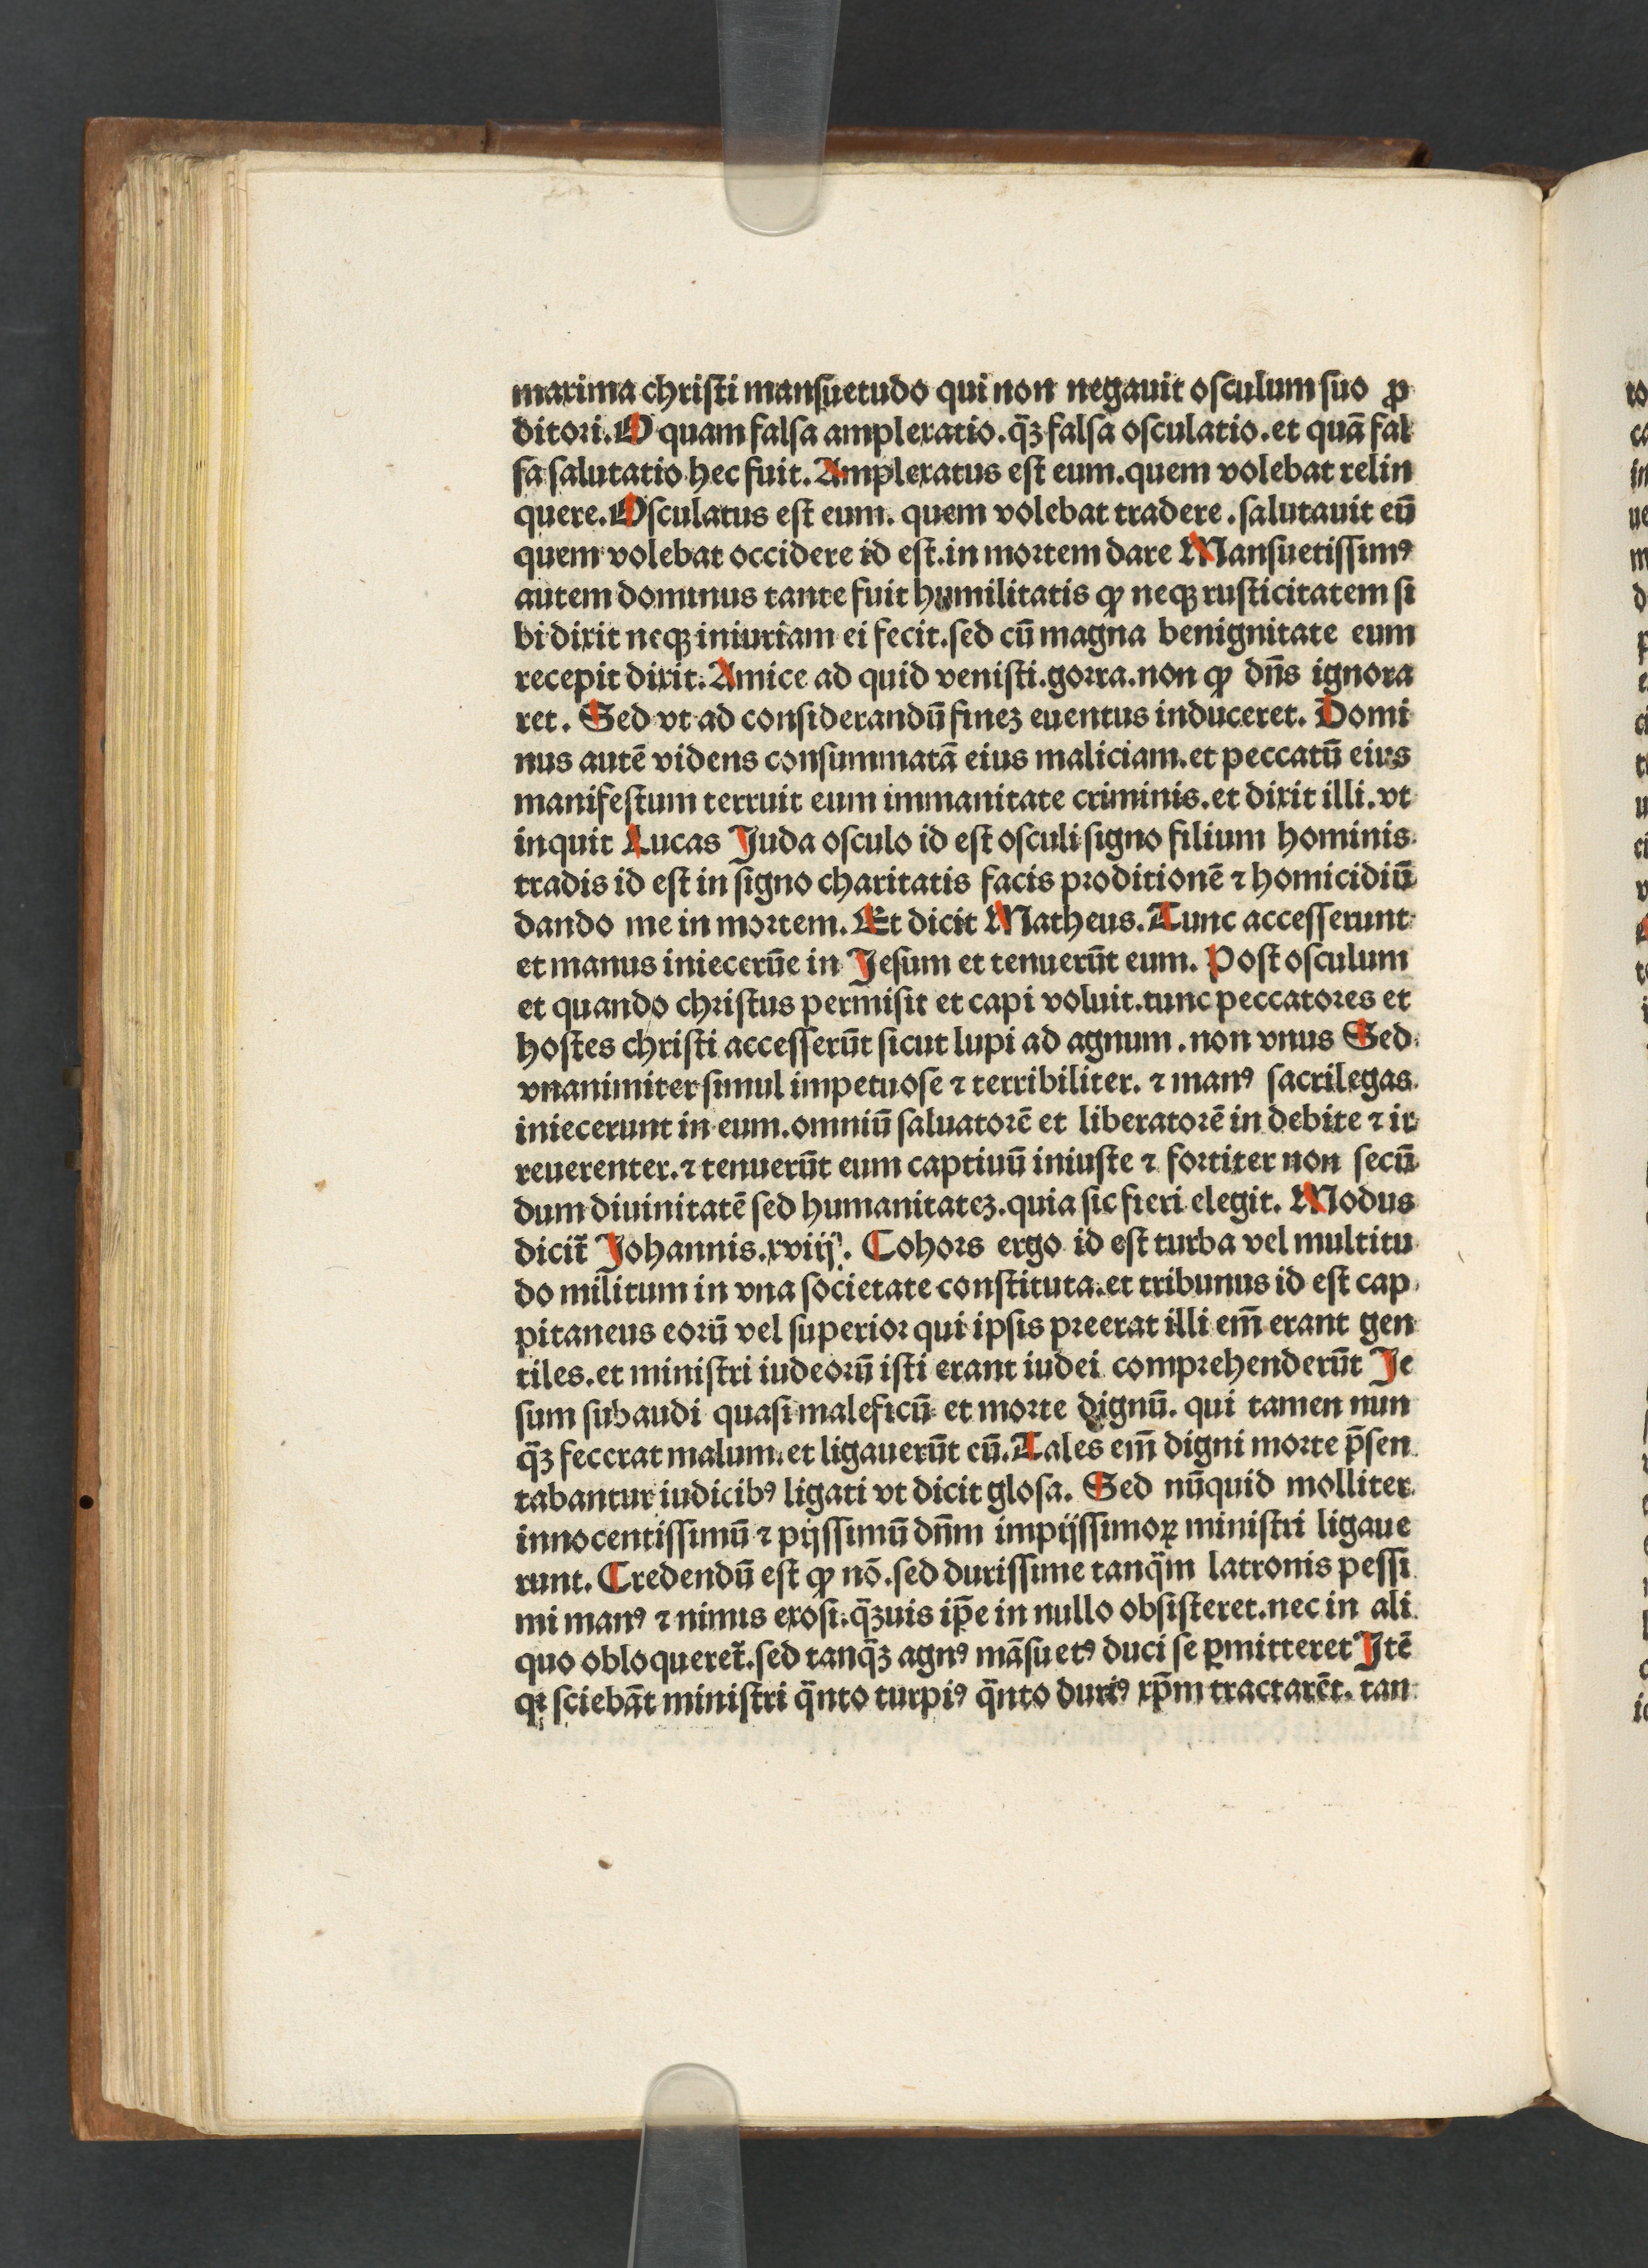 maxima christi mansuetudo qui non negauit osculum suo ꝓ
ditori. O quam falsa amplexatio. q̃ꝫ falsa osculatio. et quā fal
sa salutatio hec fuit. Amplexatus est eum. quem volebat relin
quere. Osculatus est eum. quem volebat tradere. salutauit eū
quem volebat occidere id est. in mortem dare Mansuetissimꝰ
autem dominus tante fuit humilitatis ꝙ neqꝫ rusticitatem si
bi dixit neqꝫ iniuriam ei fecit. sed cū magna benignitate eum
recepit dixit. Amice ad quid venisti. gorra. non ꝙ dn̄s ignora
ret. Sed vt ad considerandū fineꝫ euentus induceret. Domi
nus autē videns consummatā eius maliciam. et peccatū eius
manifestum terruit eum immanitate criminis. et dixit illi. vt
inquit Lucas Juda osculo id est osculi signo filium hominis
tradis id est in signo charitatis facis proditionē ⁊ homicidiū
dando me in mortem. Et dicit Matheus. Tunc accesserunt
et manus iniecerūe in Jesum et tenuerūt eum. Post osculum
et quando christus permisit et capi voluit. tunc peccatores et
hostes christi accesserūt sicut lupi ad agnum. non vnus Sed
vnanimiter simul impetuose ⁊ terribiliter. ⁊ manꝰ sacrilegas
iniecerunt in eum. omniū saluatorē et liberatorē in debite ⁊ ir
reuerenter. ⁊ tenuerūt eum captiuū iniuste ⁊ fortiter non secū
dum diuinitatē sed humanitateꝫ. quia sic fieri elegit. Modus
dicit̃ Johannis. xviij. Cohors ergo id est turba vel multitu
do militum in vna societate constituta. et tribunus id est cap
pitaneus eorū vel superior qui ipsis preerat illi em̄ erant gen
tiles. et ministri iudeorū isti erant iudei comprehenderūt Je
sum subaudi quasi maleficū et morte dignū. qui tamen nun
q̃ꝫ fecerat malum. et ligauerūt cū. Tales em̄ digni morte p̄sen
tabantur iudicibꝰ ligati vt dicit glosa. Sed nūquid molliter
innocentissimū ⁊ pijssimū dn̄m impijssimoꝝ ministri ligaue
runt. Credendū est ꝙ nō. sed durissime tanq̃m latronis pessi
mi manꝰ ⁊ nimis exosi. q̃ꝫuis ip̄e in nullo obsisteret. nec in ali
quo obloqueret̃. sed tanq̃ꝫ agnꝰ māsuetꝰ duci se ꝑmitteret Jtē
qꝛ sciebāt ministri q̃nto turpiꝰ q̃nto duriꝰ xp̄m tractarēt. tan